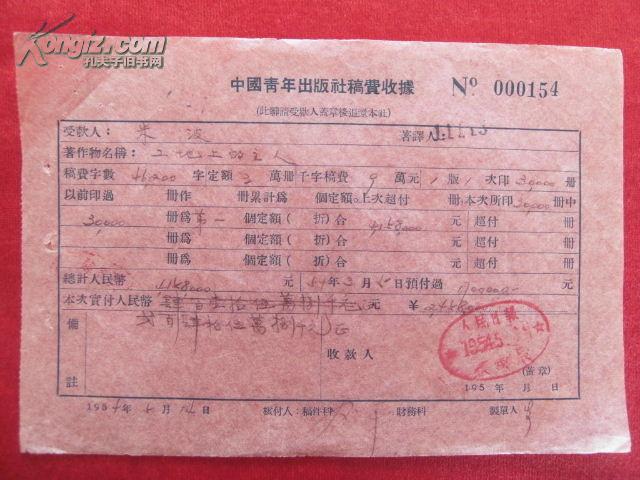 Kongfz.com
孔夫子旧书网
中國青年出版社稿費收據 Nº 000154
(此聯請受款人蓋章後退還本社)
受款人: 朱波 著譯人:
著作物名稱: 工地上的主人
稿費字數 46200 字定額 3 萬冊千字稿費 9 萬元 1 版 1 次印 30,000 冊
以前印過 冊作 冊累計爲 個定額上次超付 冊本次所印 30,000 冊中
30,000 冊爲第一個定額( 折)合 4,158,000 元超付 冊
冊爲 個定額( 折)合 元超付 冊
冊爲 個定額( 折)合 元超付 冊
總計人民幣 4,158,000 元 54年3月 日預付過
本次實付人民幣 肆百壹拾伍萬捌仟元 元 ¥ 2,458,000
備註 弍百肆拾伍萬捌仟元正
收款人
人民日報
1954.5.
(蓋章)
195 年 月 日
1954年5月 日 核付人:稿件科 財務科 製單人